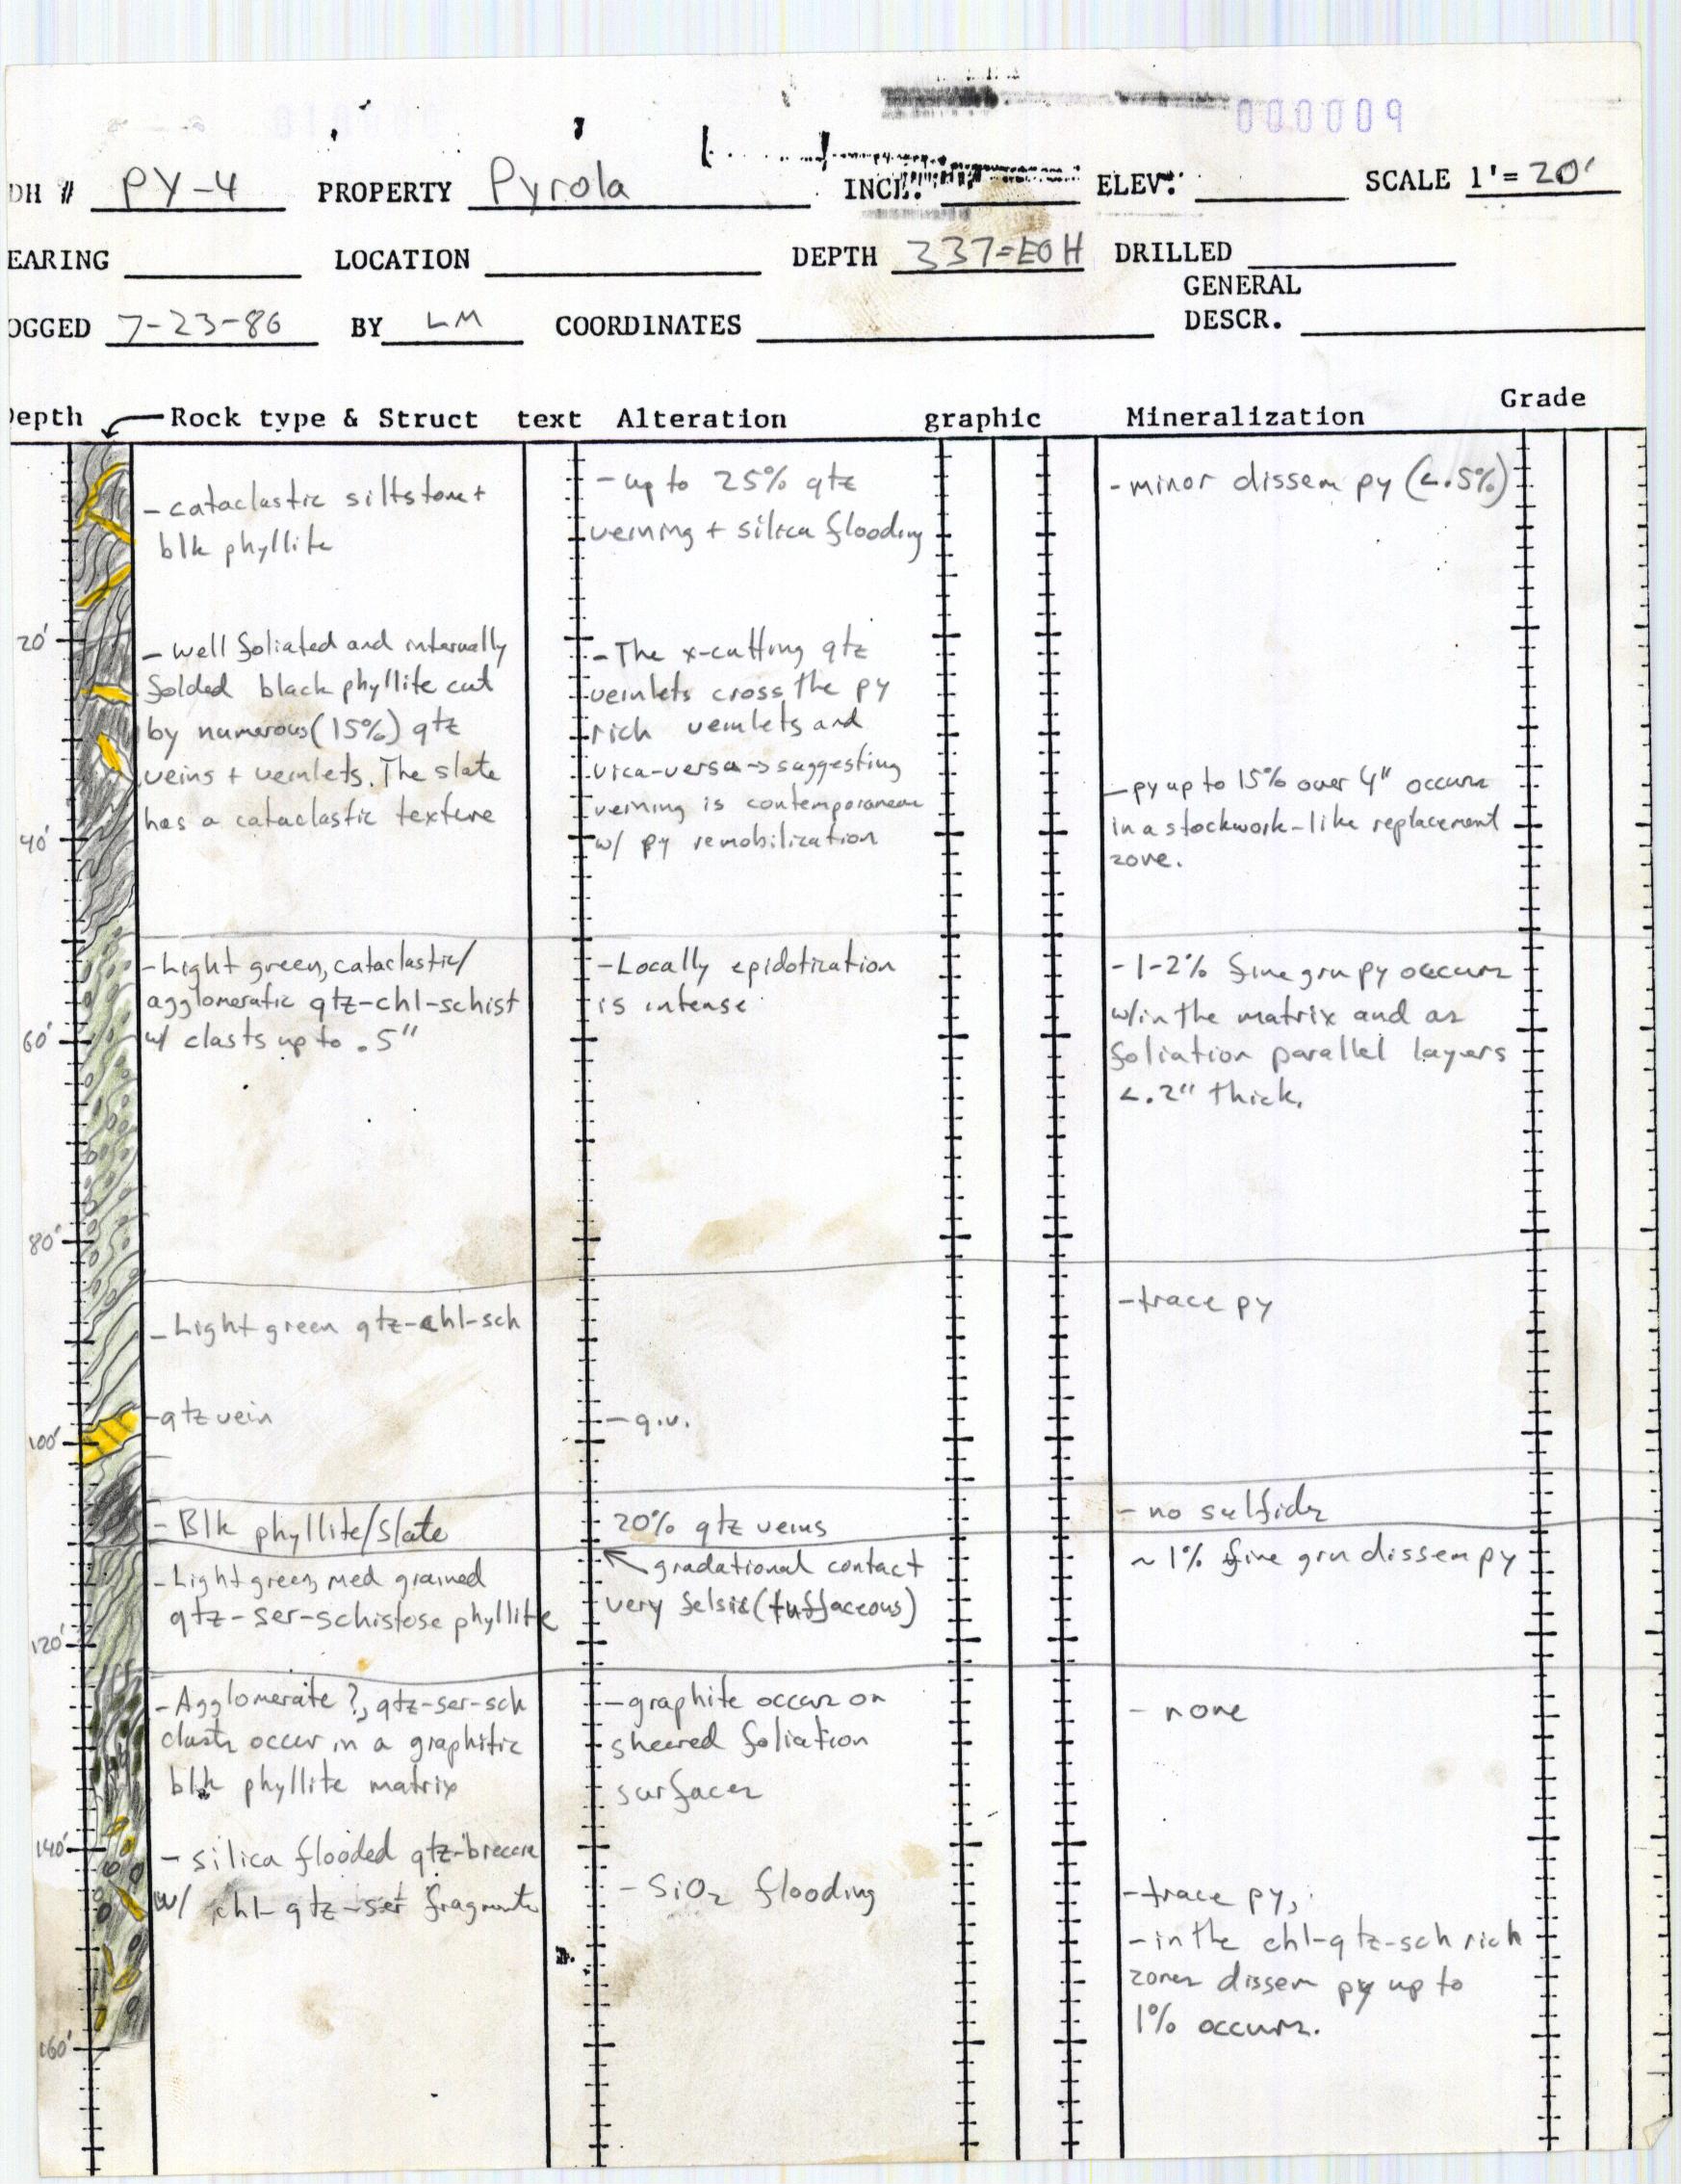 000009
DH # PY-4 PROPERTY Pyrola INCL. ELEV. SCALE 1'=20'
EARING LOCATION DEPTH 337=EOH DRILLED
GENERAL
OGGED 7-23-86 BY LM COORDINATES DESCR.
Depth Rock type & Struct text Alteration graphic Mineralization Grade
- cataclastic siltstone +
blk phyllite
- up to 25% qtz
veining + silica flooding
- minor dissem py (<.5%)
20'
- Well foliated and internally
folded black phyllite cut
by numerous (15%) qtz
veins + veinlets. The slate
has a cataclastic texture
- The x-cutting qtz
veinlets cross the py
rich veinlets and
vica-versa -> suggesting
veining is contemporaneous
w/ py remobilization
- py up to 15% over 4" occurs
in a stockwork-like replacement
zone.
40'
- Light green, cataclastic/
agglomeratic qtz-chl-schist
w/ clasts up to .5"
- Locally epidotization
is intense
- 1-2% fine grn py occurs
w/in the matrix and as
foliation parallel layers
<.2" thick.
60'
80'
- Light green qtz-chl-sch
- trace py
- qtz vein
- q.v.
100'
- Blk phyllite/slate
20% qtz veins
- no sulfides
- Light green, med grained
qtz-ser-schistose phyllite
gradational contact
very felsic (tuffaceous)
~ 1% fine grn dissem py
120'
- Agglomerate?, qtz-ser-sch
clasts occur in a graphitic
blk phyllite matrix
- graphite occurs on
sheared foliation
surfaces
- none
140'
- silica flooded qtz-breccia
w/ chl-qtz-ser fragments
- SiO2 flooding
- trace py,
- in the chl-qtz-sch rich
zones dissem py up to
1% occurs.
160'